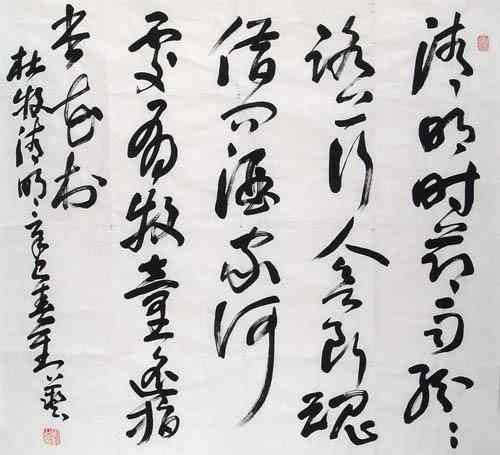 清明时节雨纷纷
路上行人欲断魂
借问酒家何
处有牧童遥指
杏花村
杜牧清明辛巳春